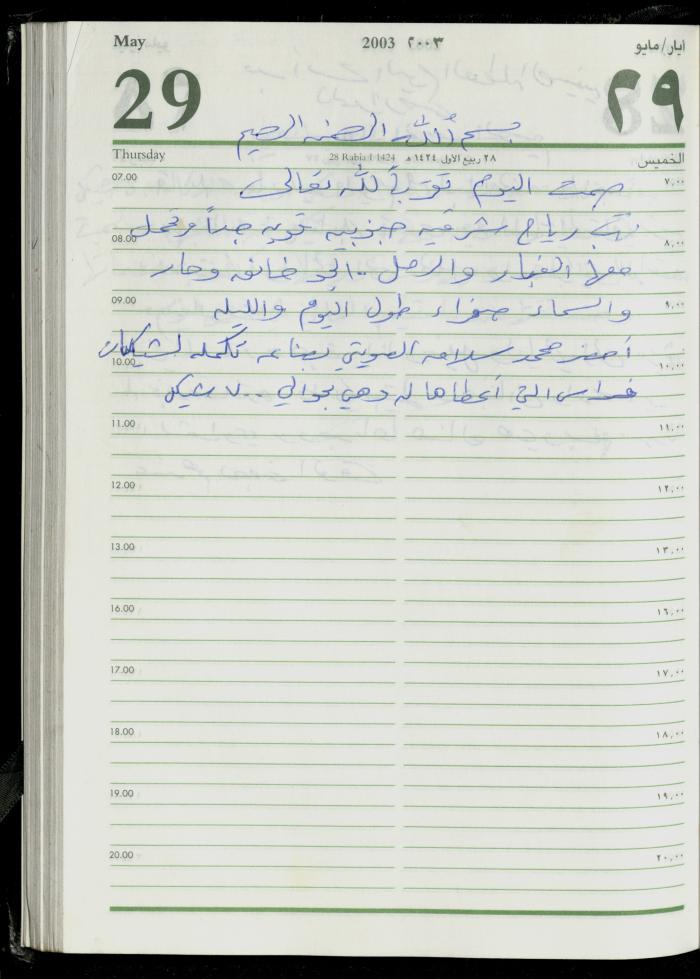 May 2003 ٢٠٠٣ ايار/مايو
29 ٢٩
بسم الله الرحمن الرحيم
Thursday 28 Rabia I 1424 ٢٨ ربيع الأول ١٤٢٤ هـ الخميس
07.00 صمت اليوم تقرباً لله تعالى ٧,٠٠
تهب رياح شرقيه جنوبيه قويه جداً وتحمل
08.00 ٨,٠٠
معها الغبار والرمل. الجو خانق وحار
09.00 والسماء صفراء طول اليوم والليله ٩,٠٠
أحضر محمد سلامه الصويتي بضاعه تكمله لشيكات
10.00 ١٠,٠٠
فراس التي أعطاها له وهي بحوالي ٧٠٠٠ شيكل
11.00 ١١,٠٠
12.00 ١٢,٠٠
13.00 ١٣,٠٠
16.00 ١٦,٠٠
17.00 ١٧,٠٠
18.00 ١٨,٠٠
19.00 ١٩,٠٠
20.00 ٢٠,٠٠